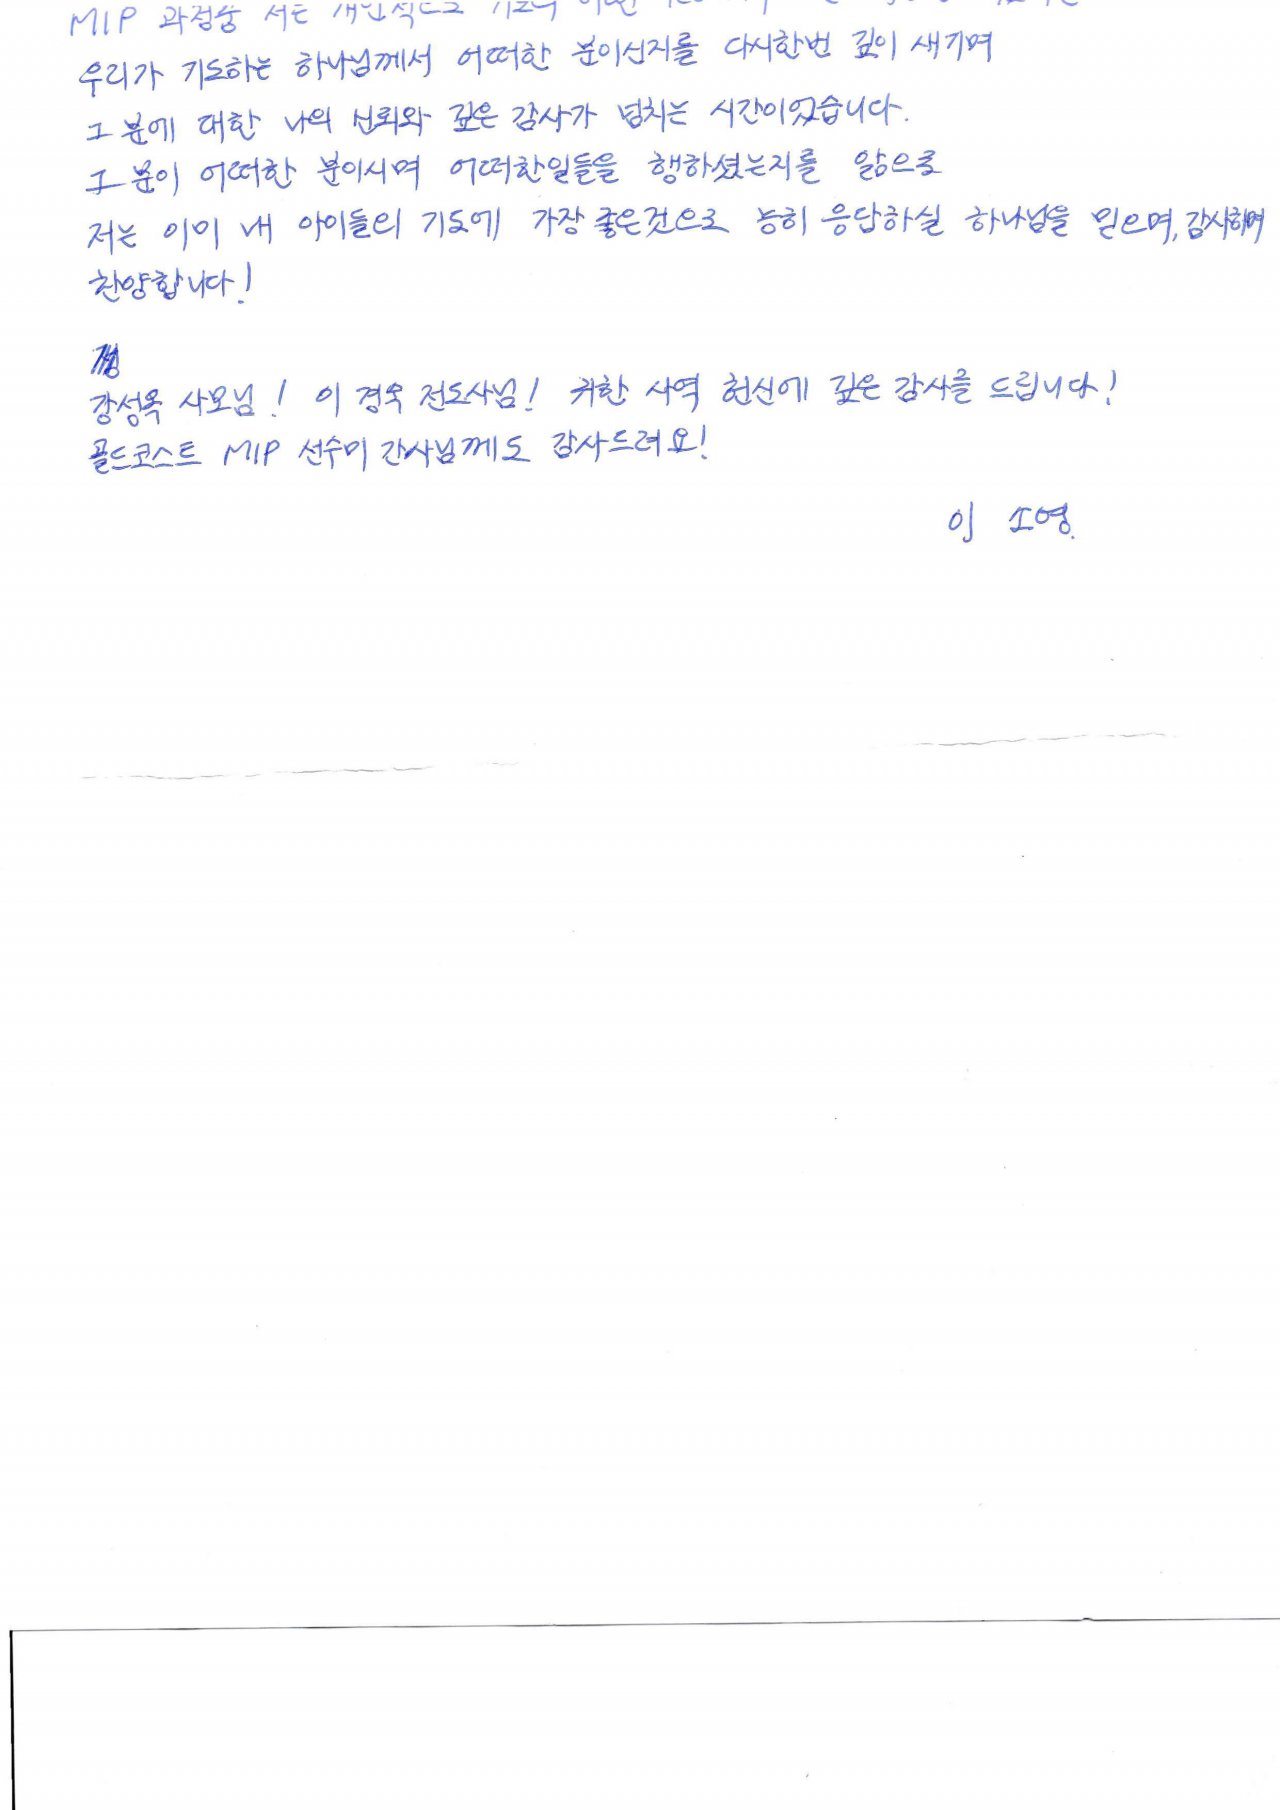 MIP 과정중 저는 개인적으로 기도의
우리가 기도하는 하나님께서 어떠한 분이신지를 다시한번 깊이 새기며
그 분에 대한 나의 신뢰와 깊은 감사가 넘치는 시간이었습니다.
그 분이 어떠한 분이시며 어떠한일들을 행하셨는지를 앎으로
저는 이미 내 아이들의 기도에 가장 좋은것으로 능히 응답하실 하나님을 믿으며, 감사하며
찬양합니다!
강성옥 사모님! 이경욱 전도사님! 귀한 사역 헌신에 깊은 감사를 드립니다!
골드코스트 MIP 선수미 간사님께도 감사드려요!
이 소영.